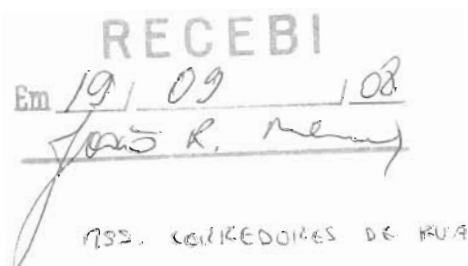 RECEBI
Em 19 / 09 / 08
João R.
ASS. CORREDORES DE RUA